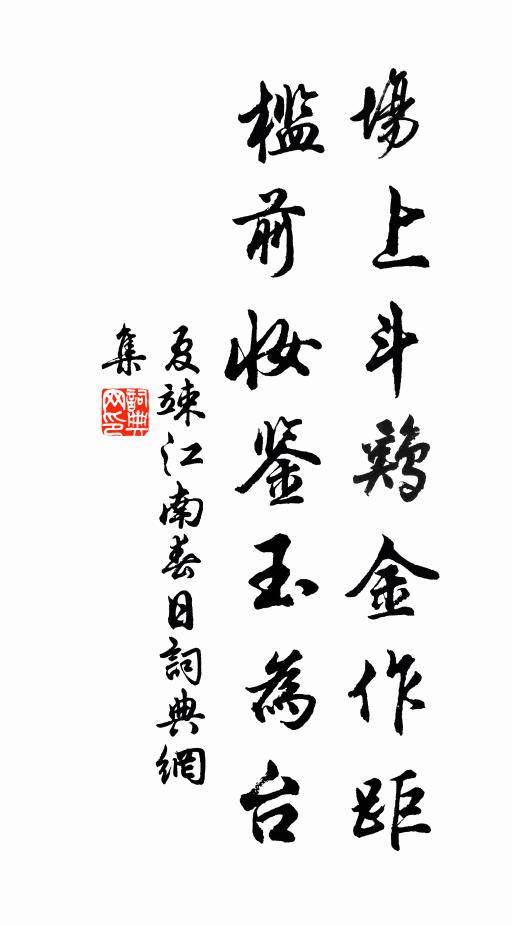 場上斗鷄金作距
檻前妆鉴玉為台
夏竦江南春日詞典網
集
詞典网印